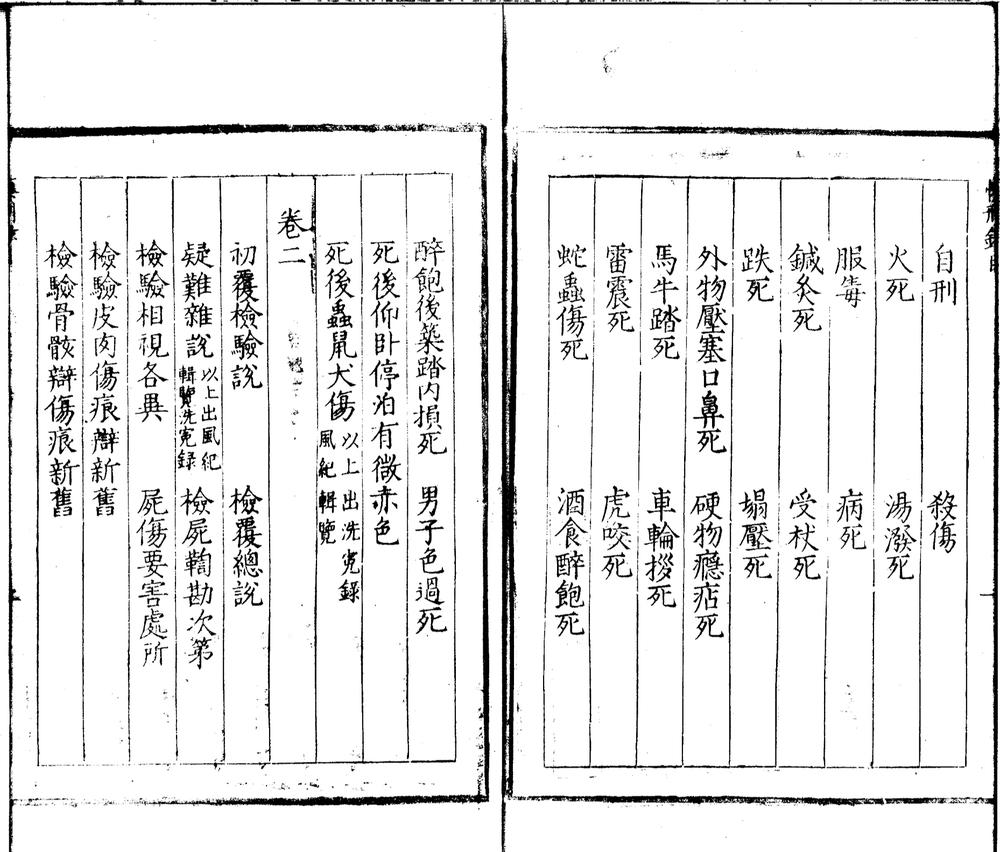 自刑　殺傷
火死　湯潑死
服毒　病死
鍼灸死　受杖死
跌死　塌壓死
外物壓塞口鼻死　硬物癮痁死
馬牛踏死　車輪拶死
雷震死　虎咬死
蛇蟲傷死　酒食醉飽死
醉飽後築踏內損死　男子色過死
死後仰卧停泊有微赤色
死後蟲鼠犬傷以上出洗寃錄風紀輯覽
卷二
初覆檢驗說　檢覆總說
疑難雜說以上出風紀輯覽洗寃錄　檢屍鞫勘次第
檢驗相視各異　屍傷要害處所
檢驗皮肉傷痕辯新舊
檢驗骨骸辯傷痕新舊